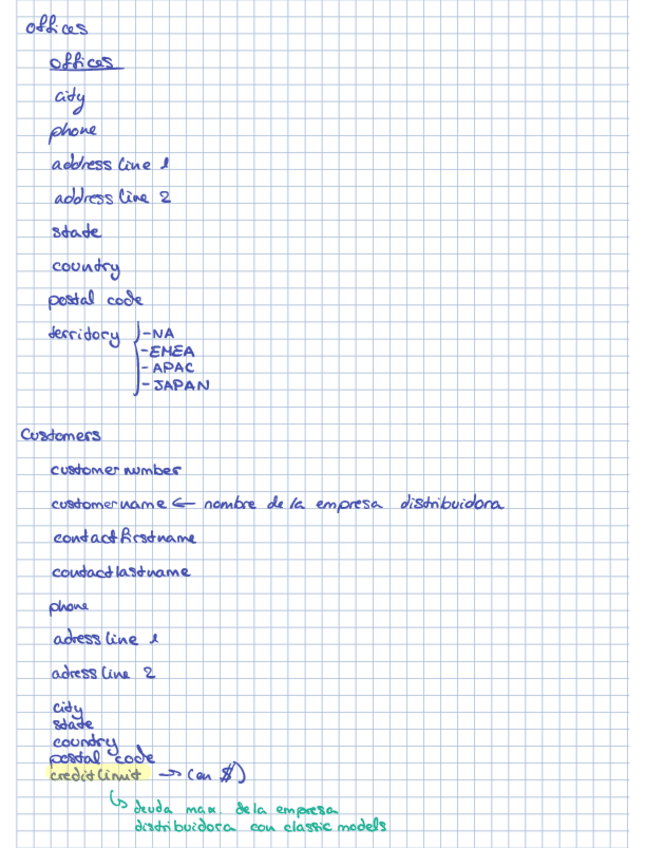 offices
offices
city
phone
address line 1
address line 2
state
country
postal code
territory -NA
-EMEA
-APAC
-JAPAN
Customers
customernumber
customername ← nombre de la empresa distribuidora
contactfirstname
contactlastname
phone
adressline 1
adressline 2
city
state
country
postal code
creditlimit → (en $)
↳ deuda max. de la empresa
distribuidora con classic models